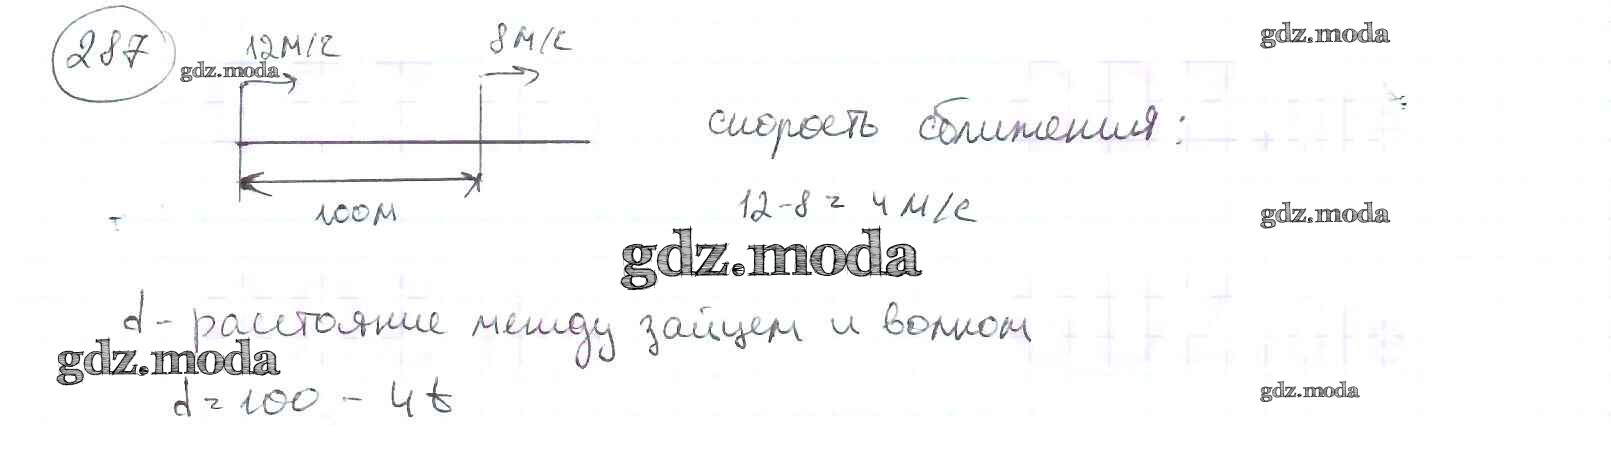 287
12м/с 8м/с
gdz.moda
gdz.moda
скорость сближения:
100м
12-8=4м/с
gdz.moda
gdz.moda
d - расстояние между зайцем и волком
gdz.moda
d=100-4t
gdz.moda